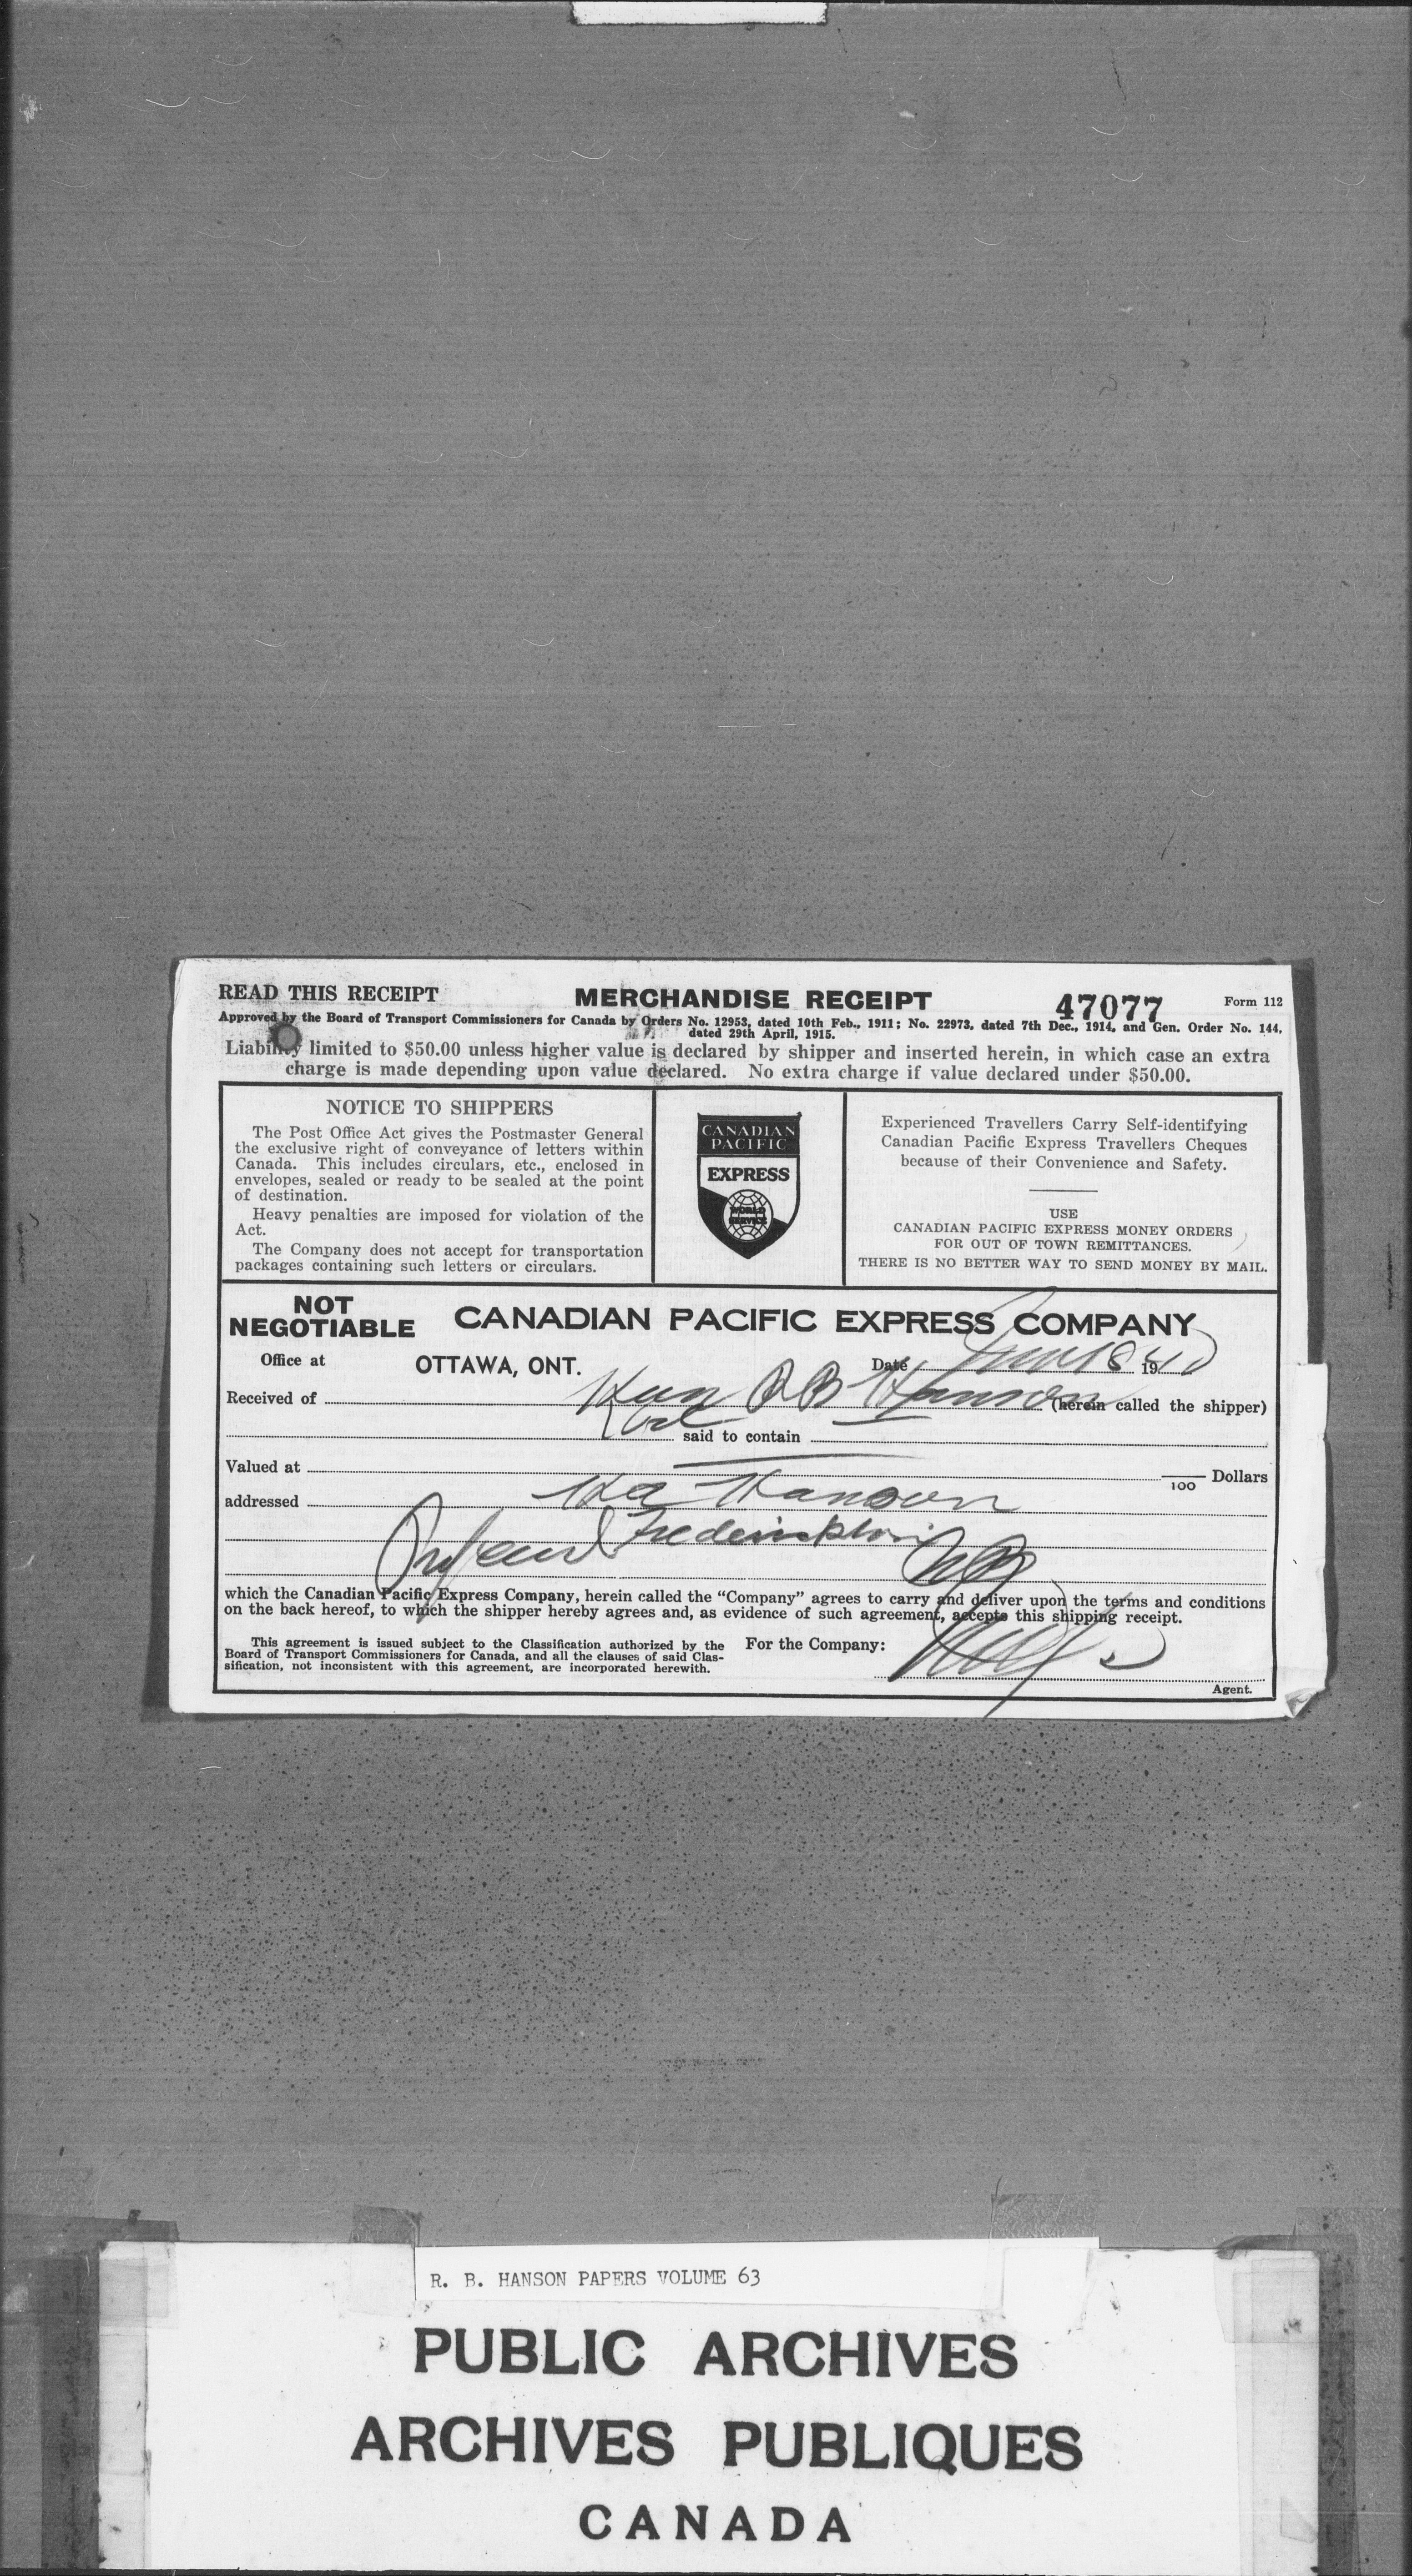 READ THIS RECEIPT MERCHANDISE RECEIPT 47077 Form 112
Approved by the Board of Transport Commissioners for Canada by Orders No. 12953, dated 10th Feb., 1911; No. 22973, dated 7th Dec., 1914, and Gen. Order No. 144,
dated 29th April, 1915.
Liability limited to $50.00 unless higher value is declared by shipper and inserted herein, in which case an extra
charge is made depending upon value declared. No extra charge if value declared under $50.00.
NOTICE TO SHIPPERS
The Post Office Act gives the Postmaster General
the exclusive right of conveyance of letters within
Canada. This includes circulars, etc., enclosed in
envelopes, sealed or ready to be sealed at the point
of destination.
Heavy penalties are imposed for violation of the
Act.
The Company does not accept for transportation
packages containing such letters or circulars.
CANADIAN
PACIFIC
EXPRESS
WORLD
SERVICE
Experienced Travellers Carry Self-identifying
Canadian Pacific Express Travellers Cheques
because of their Convenience and Safety.
USE
CANADIAN PACIFIC EXPRESS MONEY ORDERS
FOR OUT OF TOWN REMITTANCES.
THERE IS NO BETTER WAY TO SEND MONEY BY MAIL.
NOT
NEGOTIABLE
CANADIAN PACIFIC EXPRESS COMPANY
Office at OTTAWA, ONT. Date 18 1940
Received of Hon R B Hanson (herein called the shipper)
said to contain
Valued at 100 Dollars
addressed Hanson
Fredericton
NB
which the Canadian Pacific Express Company, herein called the "Company" agrees to carry and deliver upon the terms and conditions
on the back hereof, to which the shipper hereby agrees and, as evidence of such agreement, accepts this shipping receipt.
This agreement is issued subject to the Classification authorized by the
Board of Transport Commissioners for Canada, and all the clauses of said Clas-
sification, not inconsistent with this agreement, are incorporated herewith.
For the Company:
Agent.
R. B. HANSON PAPERS VOLUME 63
PUBLIC ARCHIVES
ARCHIVES PUBLIQUES
CANADA